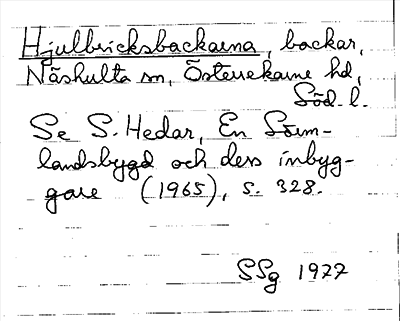 Hjulbricksbackarna, backar,
Näshulta sn, Österrekarne hd,
Söd. l.
Se S. Hedar, En Sörm-
landsbygd och dess inbyg-
gare (1965), s. 328.
SSg 1977